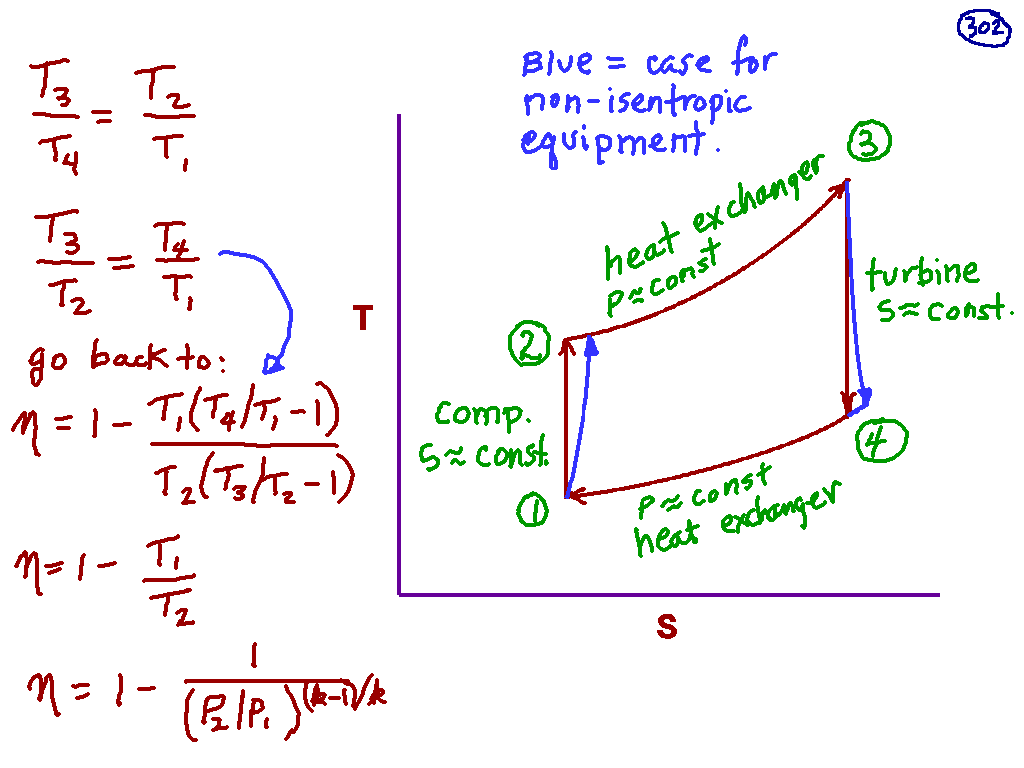 302
T3/T4 = T2/T1
T3/T2 = T4/T1
go back to:
η = 1 - T1(T4/T1 - 1) / T2(T3/T2 - 1)
η = 1 - T1/T2
η = 1 - 1/(P2/P1)^(k-1)/k
Blue = case for
non-isentropic
equipment.
T
S
1
2
3
4
heat exchanger
P ≈ const
turbine
S ≈ const.
comp.
S ≈ const.
P ≈ const
heat exchanger